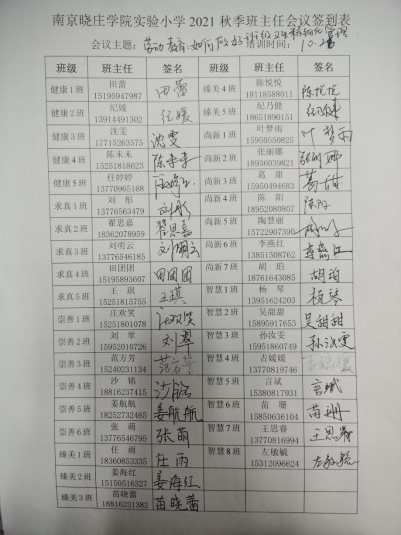 南京晓庄学院实验小学 2021 秋季班主任会议签到表
会议主题：劳动教育 如何做好班级 管理 培训时间：10.26
班级 班主任 签名 班级 班主任 签名
健康1班 田蕾 15195947987 田蕾 臻美4班 陈悦悦 18118588011 陈悦悦
健康2班 纪媛 13914491302 纪媛 臻美5班 纪乃健 18651890151 纪乃健
健康3班 沈雯 17715263575 沈雯 尚新1班 叶梦雨 15950550825 叶梦雨
健康4班 陈未未 15251818623 陈未未 尚新2班 张丽娜 18936039821 张丽娜
健康5班 任婷婷 13770965168 尚新3班 葛甜 15950494683 葛甜
求真1班 刘彤 13776563479 刘彤 尚新4班 陈阳 18952080807 陈阳
求真2班 翟思嘉 18362078959 翟思嘉 尚新5班 陶慧丽 15722907390
求真3班 刘明云 13776546185 刘明云 尚新6班 李燕红 13851508762 李燕红
求真4班 田团团 15195893607 田团团 尚新7班 胡珀 18761643085 胡珀
求真5班 王琪 15251815755 王琪 智慧1班 杨琴 13951624203 杨琴
崇善1班 庄欢笑 15251801078 庄欢笑 智慧2班 吴甜甜 15895917653 吴甜甜
崇善2班 刘翠 15952010726 刘翠 智慧3班 孙汝雯 15951860749 孙汝雯
崇善3班 范方芳 15240231134 范方芳 智慧4班 吉媛媛 13770819746 吉媛媛
崇善4班 沙铭 18816237415 沙铭 智慧5班 言斌 15380817931 言斌
崇善5班 姜航航 18252732465 姜航航 智慧6班 苗珊 15850636104 苗珊
崇善6班 张萌 13776546795 张萌 智慧7班 王思睿 13770816994 王思睿
臻美1班 任雨 18360853335 任雨 智慧8班 左敏毓 15312096624 左敏毓
臻美2班 姜海红 15150516327 姜海红
臻美3班 苗晓蕾 18816231382 苗晓蕾